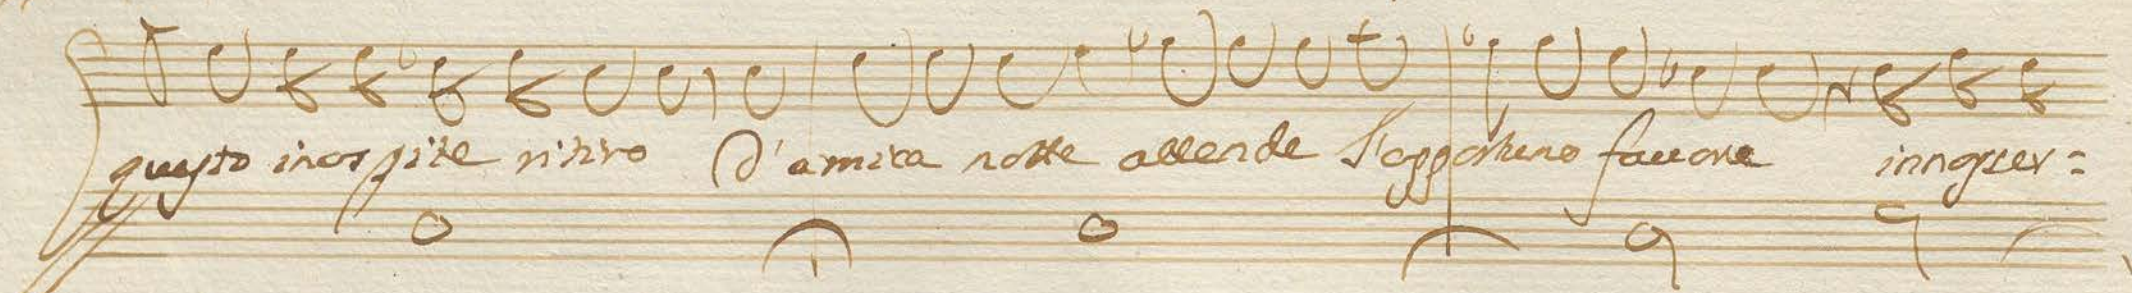 questo inospite ritiro d'amica notte attende l'opportuno fauore innosser=